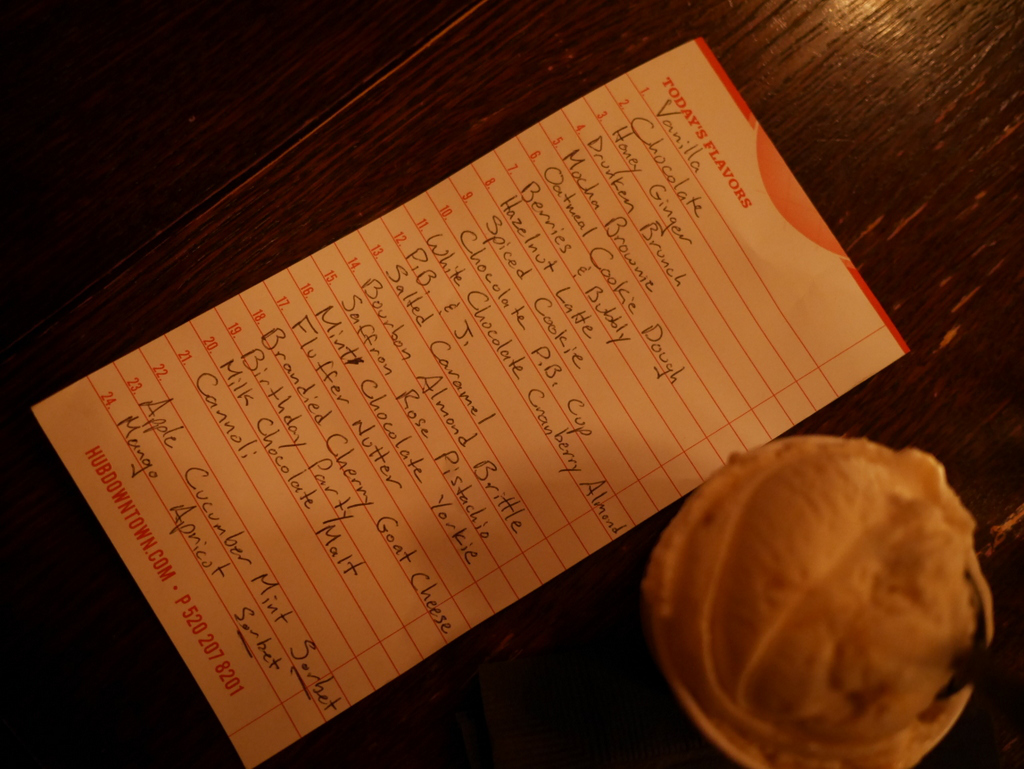 TODAY'S FLAVORS
1. Vanilla
2. Chocolate
3. Honey Ginger
4. Drunken Brunch
5. Mocha Brownie
6. Oatmeal Cookie Dough
7. Berries & Bubbly
8. Hazelnut Latte
9. Spiced Cookie
10. Chocolate P.B. Cup
11. White Chocolate Cranberry Almond
12. P.B. & J.
13. Salted Caramel
14. Bourbon Almond Brittle
15. Saffron Rose Pistachio
16. Mint Chocolate Yorkie
17. Fluffer Nutter
18. Brandied Cherry Goat Cheese
19. Birthday Party
20. Milk Chocolate Malt
21. Cannoli
22.
23. Apple Cucumber Mint Sorbet
24. Mango Apricot Sorbet
HUBDOWNTOWN.COM • P 520 207 8201